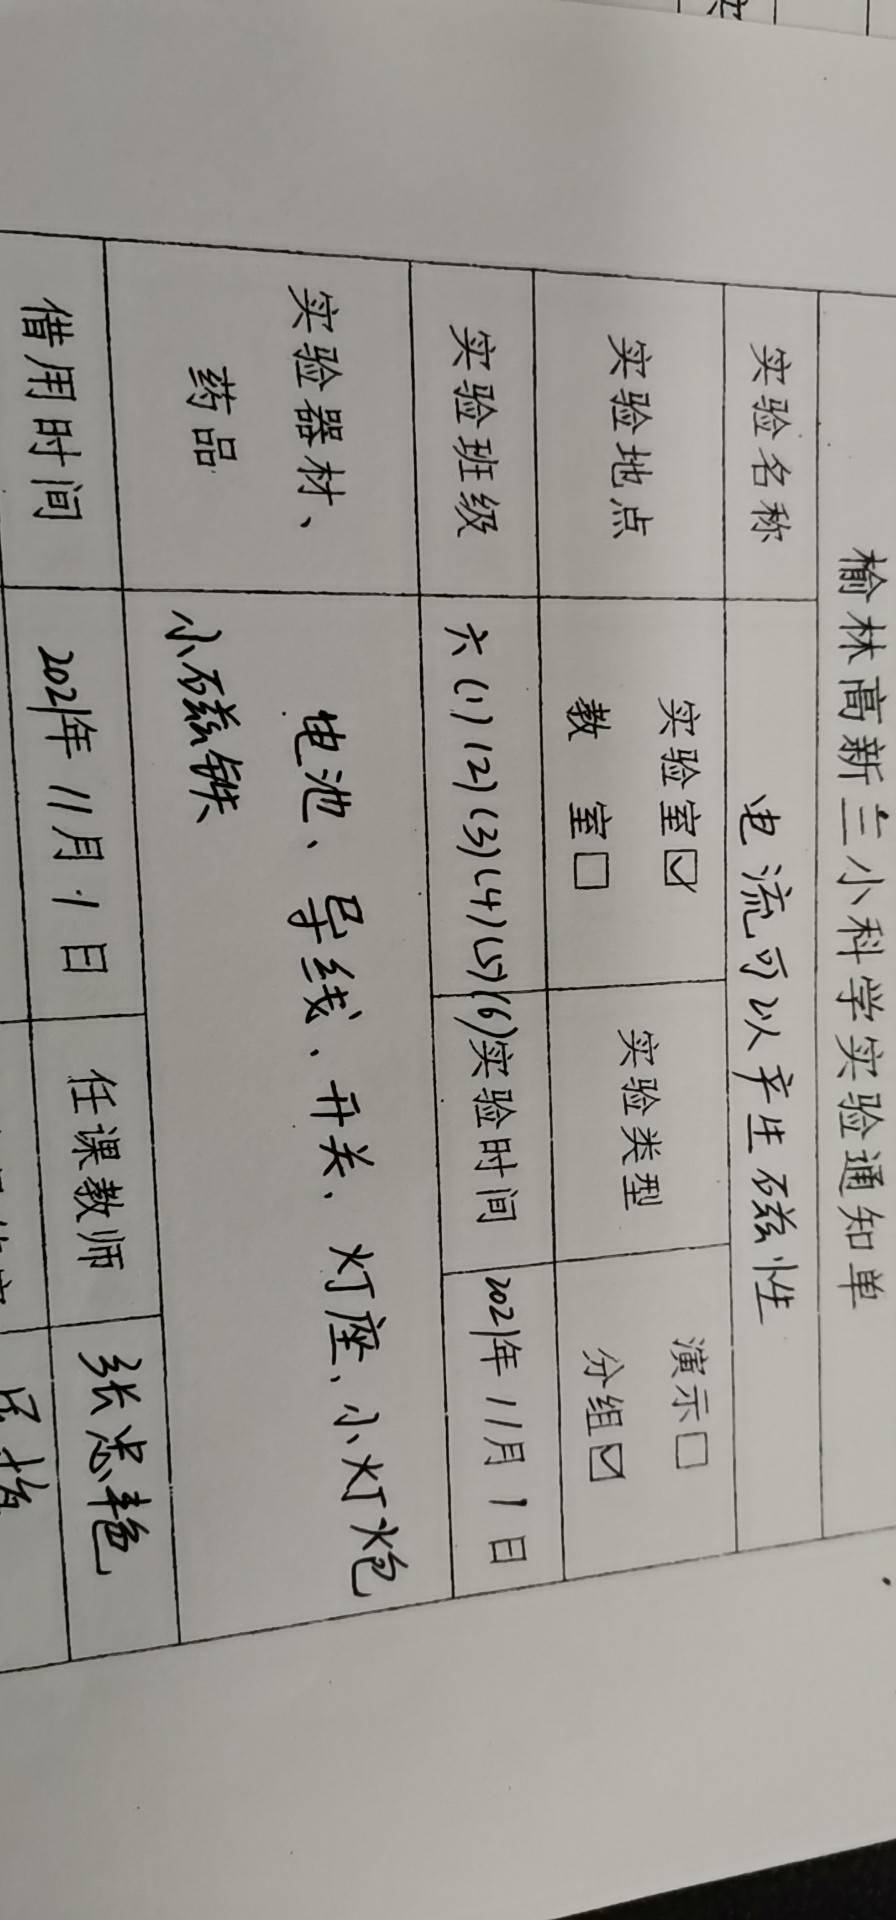 榆林高新三小科学实验通知单
实验名称 电流可以产生磁性
实验地点 实验室☑ 教 室□ 实验类型 演示□ 分组☑
实验班级 六(1)(2)(3)(4)(5)(6) 实验时间 2021年11月1日
实验器材、药品 电池、导线、开关、灯座、小灯炮
小磁铁
借用时间 2021年11月1日 任课教师 张忠艳